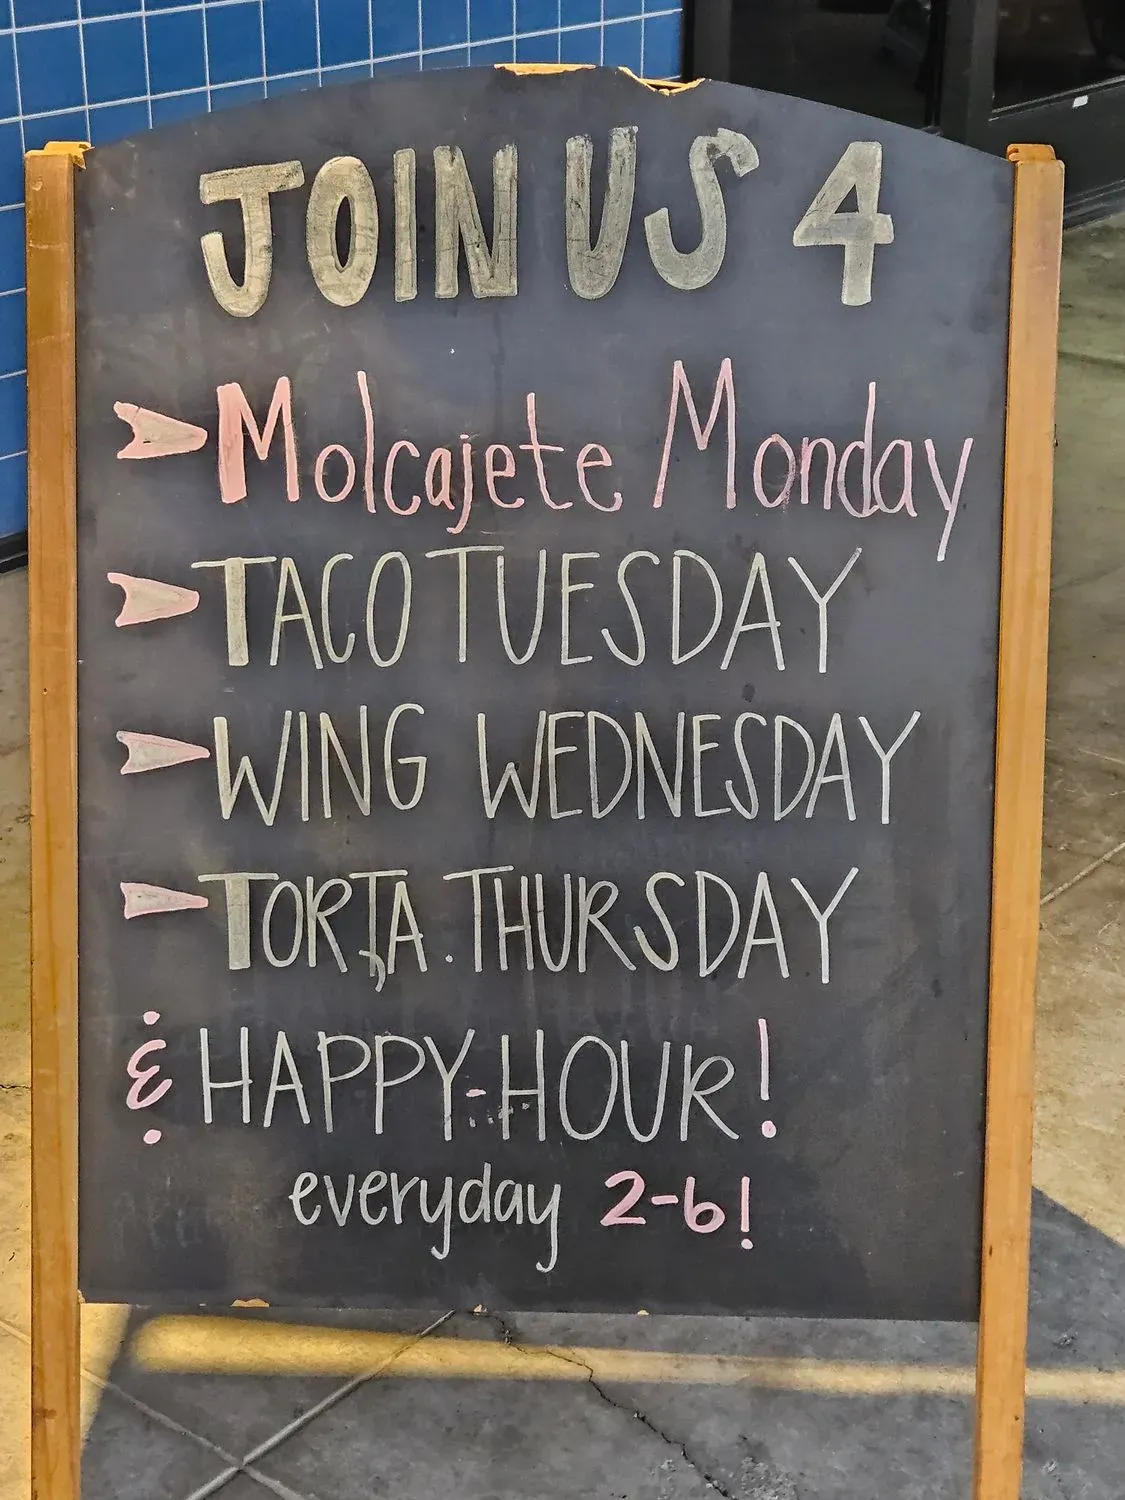 JOIN US 4
Molcajete Monday
TACO TUESDAY
WING WEDNESDAY
TORTA. THURSDAY
& HAPPY-HOUR!
everyday 2-6!